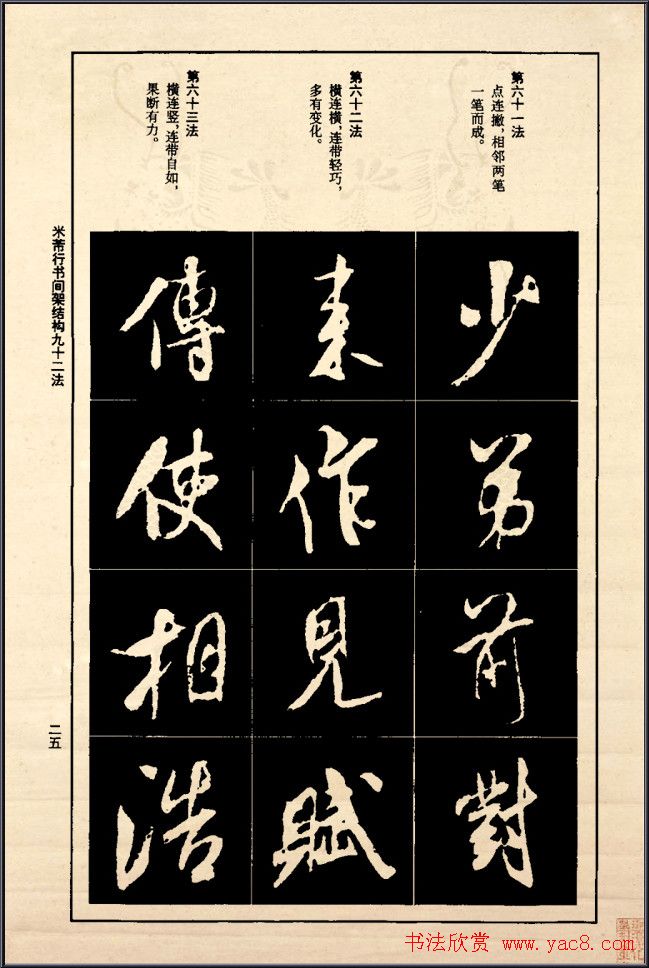 第六十一法
点连撇，相邻两笔
一笔而成。
第六十二法
横连横，连带轻巧，
多有变化。
第六十三法
横连竖，连带自如，
果断有力。
少弟前對
素作見賦
傳使相浩
米芾行书间架结构九十二法
二五
书法欣赏 www.yac8.com